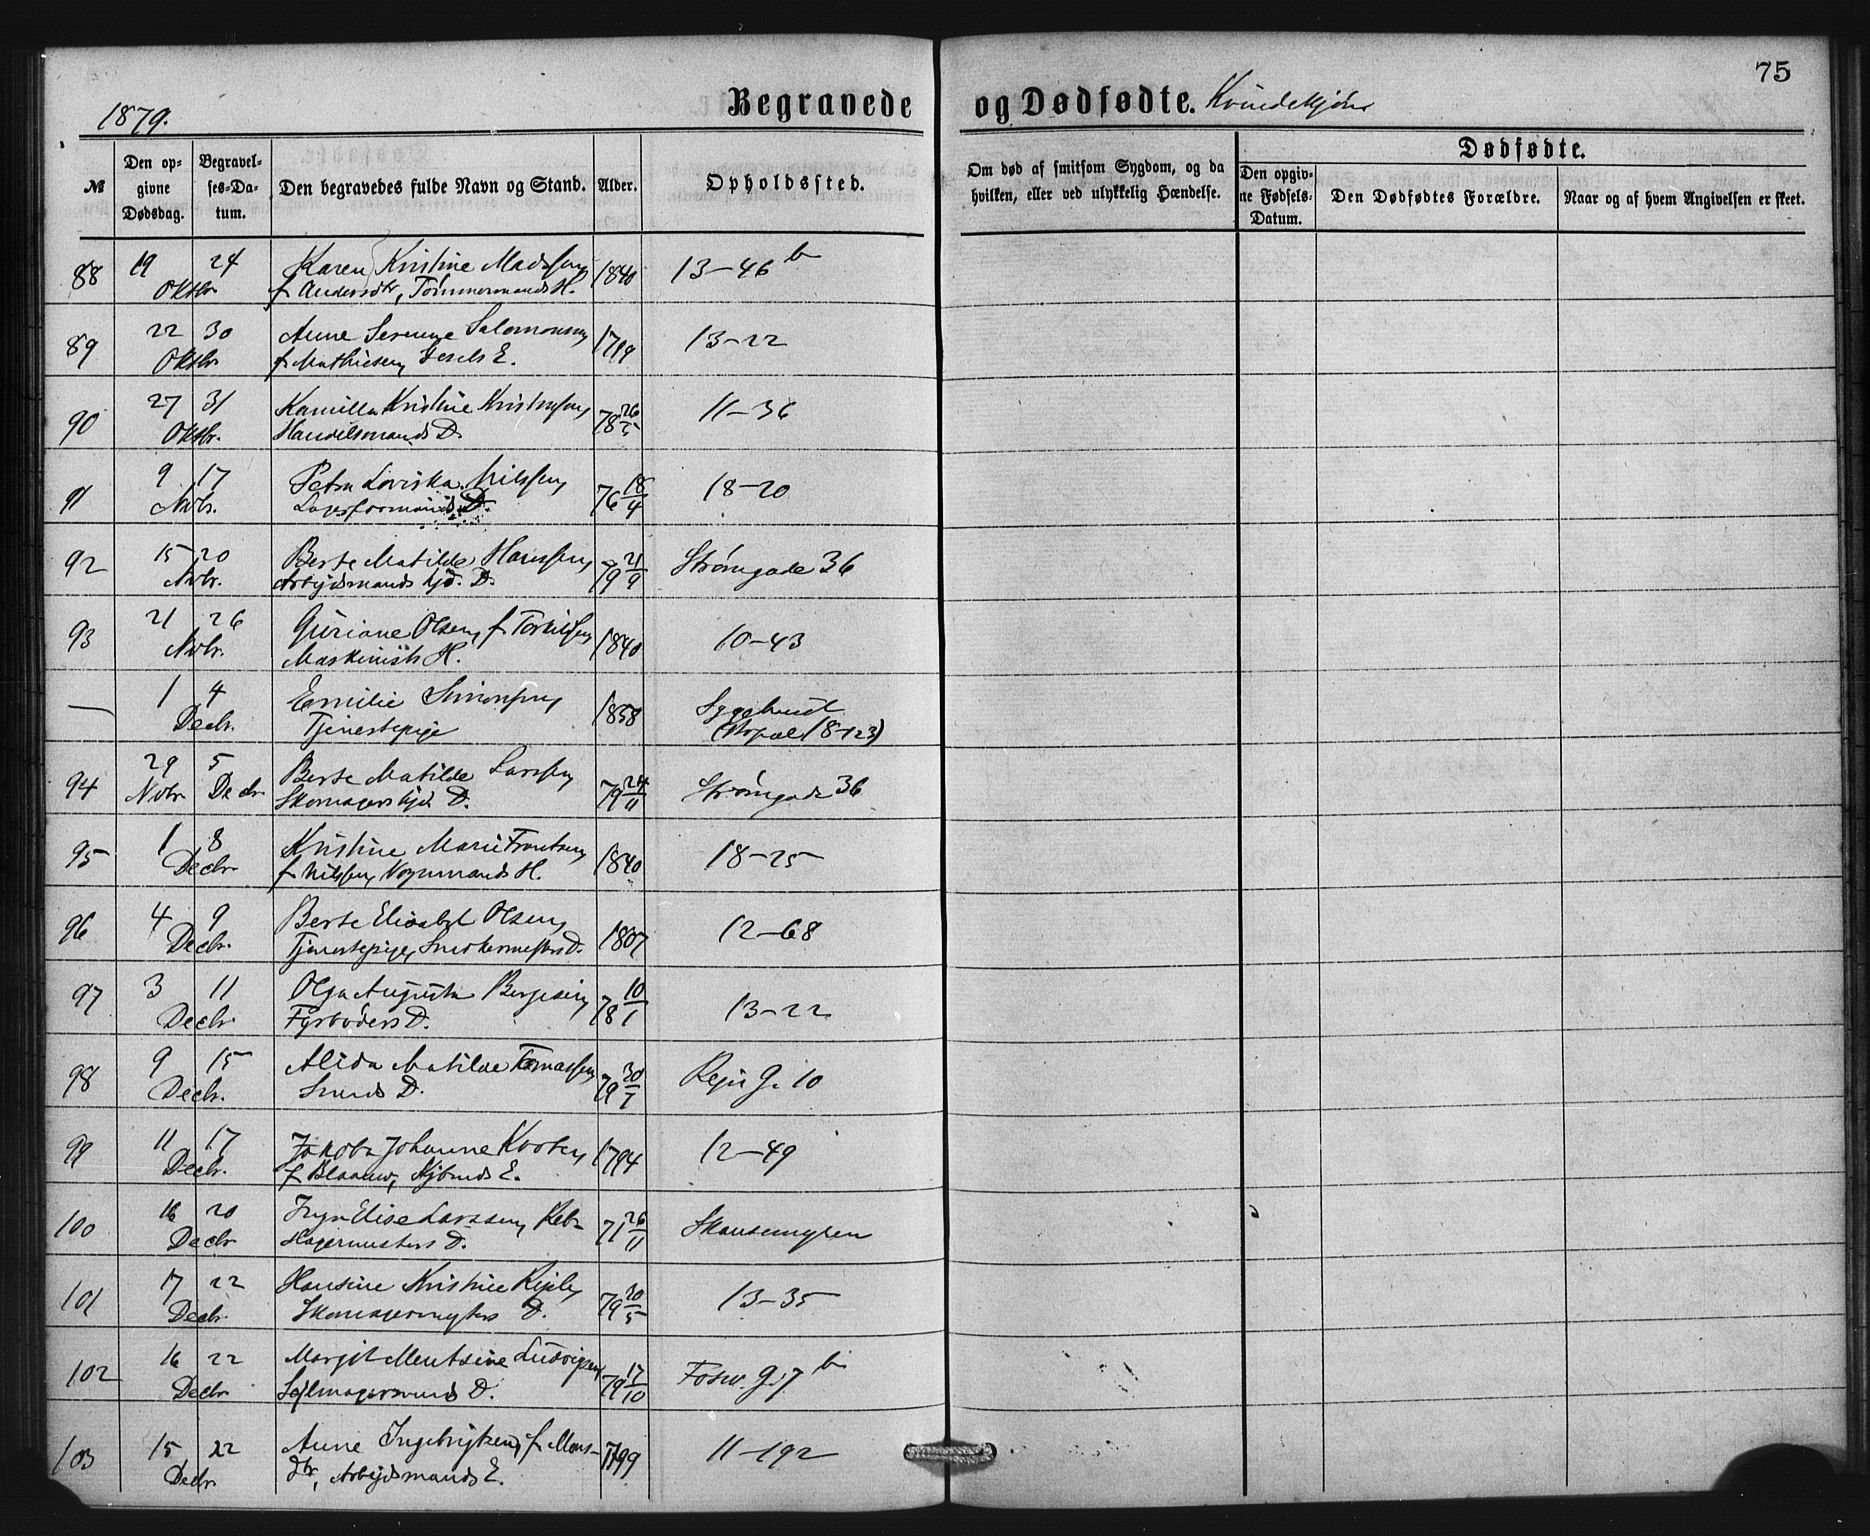 75
1879.
Begravede og Dødfødte. Kvindekjøn
№ Den opgivne Dødsdag. Begravelses-Datum. Den begravedes fulde Navn og Stand. Alder. Opholdssted. Om død af smitsom Sygdom, og da hvilken, eller ved ulykkelig Hændelse. Dødfødte. Den opgivne Fødsels-Datum. Den Dødfødtes Forældre. Naar og af hvem Angivelsen er skeet.
88 19 24 Karen Kristine Madssen 1840 13-46 b
Oktbr f Andersdtr, Tømmermands H.
89 22 30 Anne Serene Salomonsen 13-22
Oktbr. f Mathiesen, E.
90 27 31 Kamilla Kristine Kristensen 78 26/5 11-36
Oktbr. Handelsmands D.
91 9 17 Petra Loviska Nilssen 76 18/4 18-20
Novbr. Lagerformands D.
92 15 20 Berte Matilde Hanssen 79 21/9 Strømgade 36
Novbr. Arbejdsmands D.
93 21 26 Guriane Olsen, f Torkilsen 1840 10-43
Novbr. Maskinists H.
— 1 4 Emilie Simonsen 1858
Decbr. Tjenestepige 18-123)
94 29 5 Berte Matilde Larssen 79 24/11 Strømgade 36
Novbr Decbr Skomagers D.
95 1 8 Kristine Marie Frantsen 1840 18-25
Decbr f Nilssen, Vognmands H.
96 4 9 Berte Elisabet Olsen, 1807 12-68
Decbr. Tjenestepige, Snedkermesters D.
97 3 11 Olga Augusta Bergesen 78 10/1 13-22
Decbr. Fyrbøders D.
98 9 15 Alida Matilde Tomassen 79 30/7 G. 10
Decbr. D.
99 11 17 Jakoba Johanne 1794 12-49
Decbr. f Blaauw, E.
100 16 20 Elise Larssen, 71 26/11 Skansemyren
Decbr D.
101 17 22 Hansine Kristine 79 30/5 13-35
Decbr. Skomagermesters D.
102 16 22 Margit Mentsine Ludvigsen, 79 17/10 G. 7 b
Decbr Sejlmagersvends D.
103 15 22 Anne Ingebrigtsen, f Mons- 1799 11-192
Decbr. dtr, Arbejdsmands E.